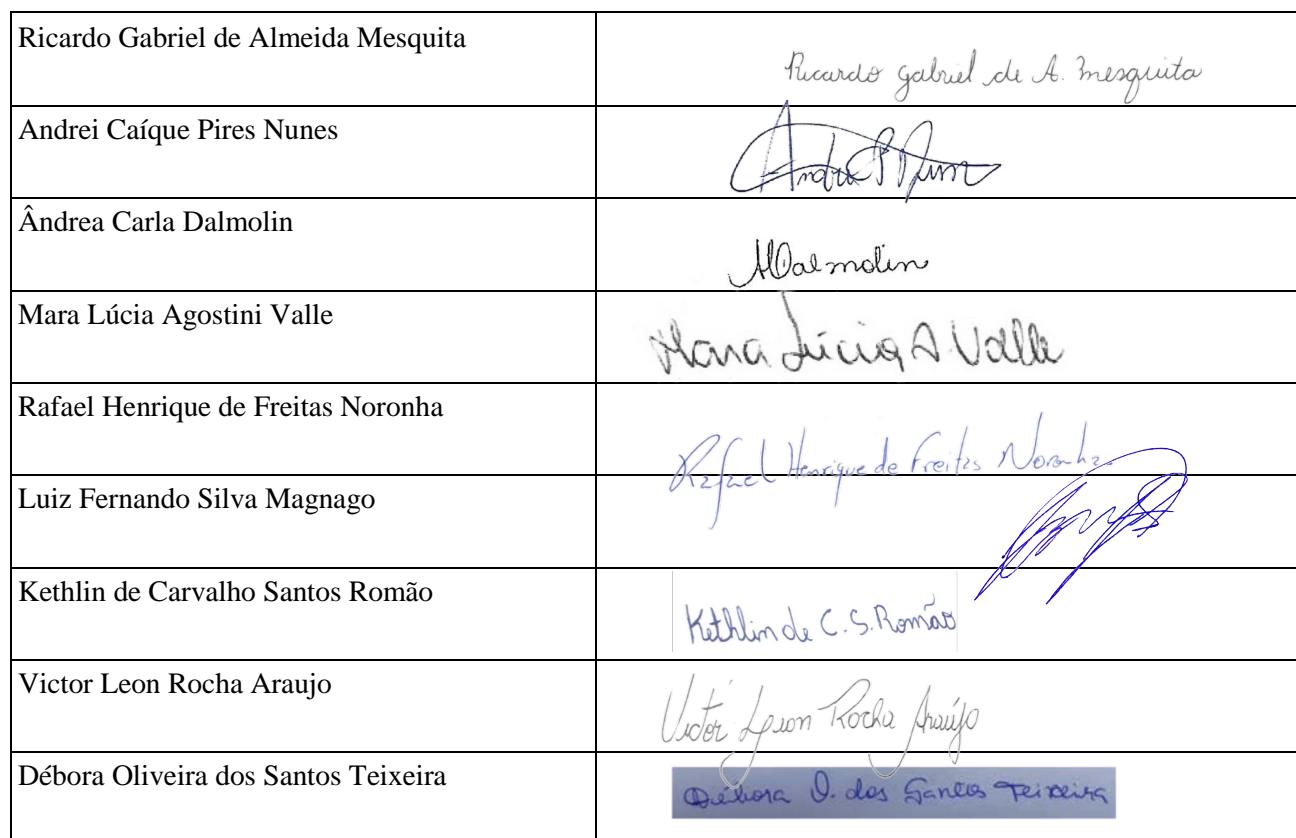 Ricardo Gabriel de Almeida Mesquita
Ricardo gabriel de A. Mesquita
Andrei Caíque Pires Nunes
Ândrea Carla Dalmolin
ACDalmolin
Mara Lúcia Agostini Valle
Mara Lúcia A Valle
Rafael Henrique de Freitas Noronha
Rafael Henrique de Freitas Noronha
Luiz Fernando Silva Magnago
Kethlin de Carvalho Santos Romão
Kethlin de C. S. Romão
Victor Leon Rocha Araujo
Victor Leon Rocha Araújo
Débora Oliveira dos Santos Teixeira
Débora O. dos Santos Teixeira